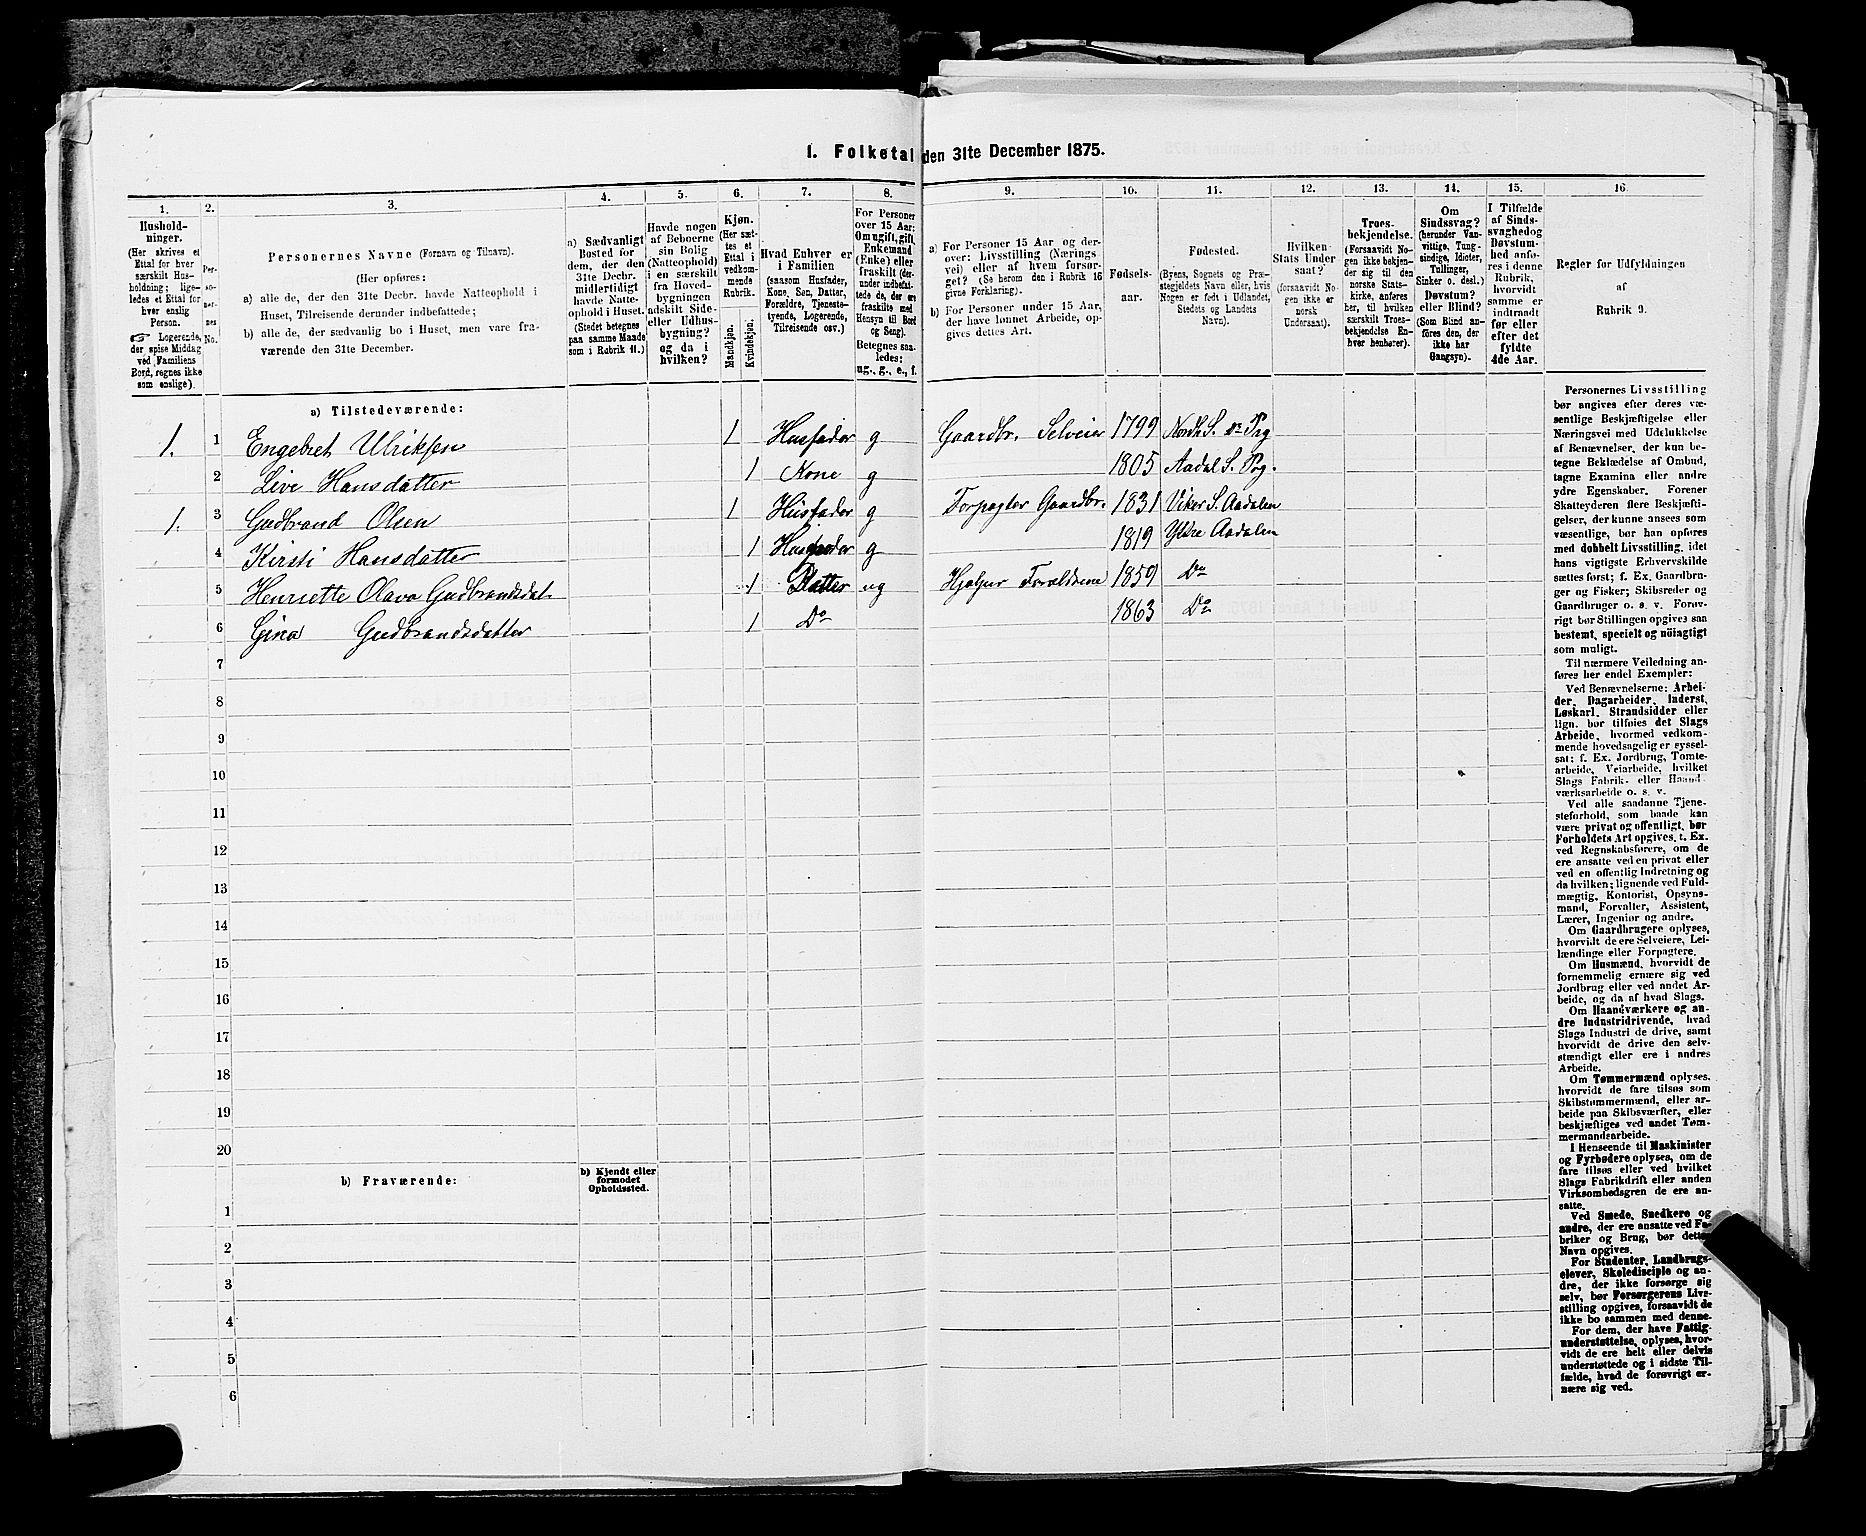 1. Folketal den 31te December 1875.
1. 2. 3. 4. 5. 6. 7. 8. 9. 10. 11. 12. 13. 14. 15. 16.
Hushold-
ninger.
(Her skrives et
Ettal for hver
særskilt Hus-
holdning; lige-
ledes et Ettal for
hver enslig
Person.
☞ Logerende,
der spise Middag
ved Familiens
Bord, regnes ikke
som enslige).
Per-
so-
ner-
nes
No.
Personernes Navne (Fornavn og Tilnavn).
(Her opføres:
a) alle de, der den 31te Decbr. havde Natteophold i
Huset, Tilreisende derunder indbefattede;
b) alle de, der sædvanlig bo i Huset, men vare fra-
værende den 31te December.
a) Sædvanligt
Bosted for
dem, der den
31te Decbr.
midlertidigt
havde Natte-
ophold i Huset.
(Stedet betegnes
paa samme Maade
som i Rubrik 11.)
Havde nogen
af Beboerne
sin Bolig
(Natteophold)
i en særskilt
fra Hoved-
bygningen
adskilt Side-
eller Udhus-
bygning?
og da i
hvilken?
Kjøn.
(Her sæt-
tes et
Ettal i
vedkom-
mende
Rubrik.
Mandkjøn.
Kvindekjøn.
Hvad Enhver er
i Familien
(saasom Husfader,
Kone, Søn, Datter,
Forældre, Tjeneste-
tyende, Logerende,
Tilreisende osv.)
For Personer
over 15 Aar:
Om ugift, gift,
Enkemand
(Enke) eller
fraskilt (der-
under indbefat-
tede de, der ere
fraskilte med
Hensyn til Bord
og Seng).
Betegnes saa-
ledes:
ug., g., e., f.
a) For Personer 15 Aar og der-
over: Livsstilling (Nærings-
vei) eller af hvem forsør-
get? (Se herom den i Rubrik 16
givne Forklaring).
b) For Personer under 15 Aar,
der have lønnet Arbeide, op-
gives dettes Art.
Fødsels-
aar.
Fødested.
(Byens, Sognets og Præ-
stegjeldets Navn eller, hvis
Nogen er født i Udlandet,
Stedets og Landets
Navn).
Hvilken
Stats Under
saat?
(forsaavidt No-
gen ikke er
norsk
Undersaat).
Troes-
bekjendelse.
(Forsaavidt No-
gen ikke bekjen-
der sig til den
norske Stats-
kirke, anføres
her, til hvilken
særskilt Troes-
bekjendelse En-
hver henhører).
Om
Sindssvag?
(herunder Van-
vittige, Tung-
sindige, Idioter,
Tullinger,
Sinker o. desl.)
Døvstum?
eller Blind?
(Som Blind an-
føres den, der
ikke har
Gangsyn).
I Tilfælde
af Sinds-
svaghed og
Døvstum-
hed anfø-
res i denne
Rubrik,
hvorvidt
samme er
indtraadt
før eller
efter det
fyldte
4de Aar.
Regler for Udfyldningen
af
Rubrik 9.
a) Tilstedeværende:
1. 1 Engebret Ulriksen 1 Husfader g Gaardbr. Selveier 1799 Nordr. S. Do Prg
2 Live Hansdatter 1 Kone g 1805 Aadal S. Prg.
1. 3 Gudbrand Olsen 1 Husfader g Forpagter Gaardbr. 1831 Viker S. Aadalen
4 Kirsti Hansdatter 1 g 1819 Ytre Aadalen
5 Henriette Olava Gudbrandsdat. 1 Datter ug Hjelper Forældrene 1859 Do
6 Gina Gudbrandsdatter 1 Do 1863 Do
7
8
9
10
11
12
13
14
15
16
17
18
19
20
b) Fraværende:
b) Kjendt eller
formodet
Opholdssted.
1
2
3
4
5
6
Personernes Livsstilling
bør angives efter deres væ-
sentlige Beskjæftigelse eller
Næringsvei med Udelukkelse
af Benævnelser, der kun be-
tegne Beklædelse af Ombud,
tagne Examina eller andre
ydre Egenskaber. Forener
Skatteyderen flere Beskjæfti-
gelser, der kunne ansees som
væsentlige, bør han opføres
med dobbelt Livsstilling, idet
hans vigtigste Erhvervskilde
sættes først; f. Ex. Gaardbru-
ger og Fisker; Skibsreder og
Gaardbruger o. s. v. Forøv-
rigt bør Stillingen opgives saa
bestemt, specielt og nöiagtigt
som muligt.
Til nærmere Veiledning an-
føres her endel Exempler:
Ved Benævnelserne: Arbei-
der, Dagarbeider, Inderst,
Løskarl, Strandsidder eller
lign. bør tilføies det Slags
Arbeide, hvormed vedkom-
mende hovedsagelig er syssel-
sat: f. Ex. Jordbrug, Tomte-
arbeide, Veiarbeide, hvilket
Slags Fabrik- eller Haand-
værksarbeide o. s. v.
Ved alle saadanne Tjene-
steforhold, som baade kan
være privat og offentligt, bør
Forholdets Art opgives, t. Ex.
ved Regnskabsførere, om de
ere ansatte ved en privat eller
ved en offentlig Indretning og
da hvilken; lignende ved Fuld-
mægtig, Kontorist, Opsyns-
mand, Forvalter, Assistent,
Lærer, Ingeniør og andre.
Om Gaardbrugere oplyses,
hvorvidt de ere Selveiere, Lei-
lændinge eller Forpagtere.
Om Husmænd, hvorvidt de
fornemmelig ernære sig ved
Jordbrug eller ved andet Ar-
beide, og da af hvad Slags.
Om Haandværkere og an-
dre Industridrivende, hvad
Slags Industri de drive, samt
hvorvidt de drive den selv-
stændigt eller ere i andres
Arbeide.
Om Tømmermænd oplyses,
hvorvidt de fare tilsøs som
Skibstømmermænd, eller ar-
beide paa Skibsværfter, eller
beskjæftiges ved andet Tøm-
mermandsarbeide.
I Henseende til Maskinister
og Fyrbødere oplyses, om de
fare tilsøs eller ved hvilket
Slags Fabrikdrift eller anden
Virksomhedsgren de ere an-
satte.
Ved Smede, Snedkere og
andre, der ere ansatte ved Fa-
briker og Brug, bør dettes
Navn opgives.
For Studenter, Landbrugs-
elever, Skoledisciple og an-
dre, der ikke forsørge sig
selv, bør Forsørgerens Livs-
stilling opgives, forsaavidt de
ikke bo sammen med denne.
For dem, der have Fattig-
understøttelse, oplyses, hvor-
vidt de ere helt eller delvis
understøttede og i sidste Til-
fælde, hvad de forøvrigt er-
nære sig ved.